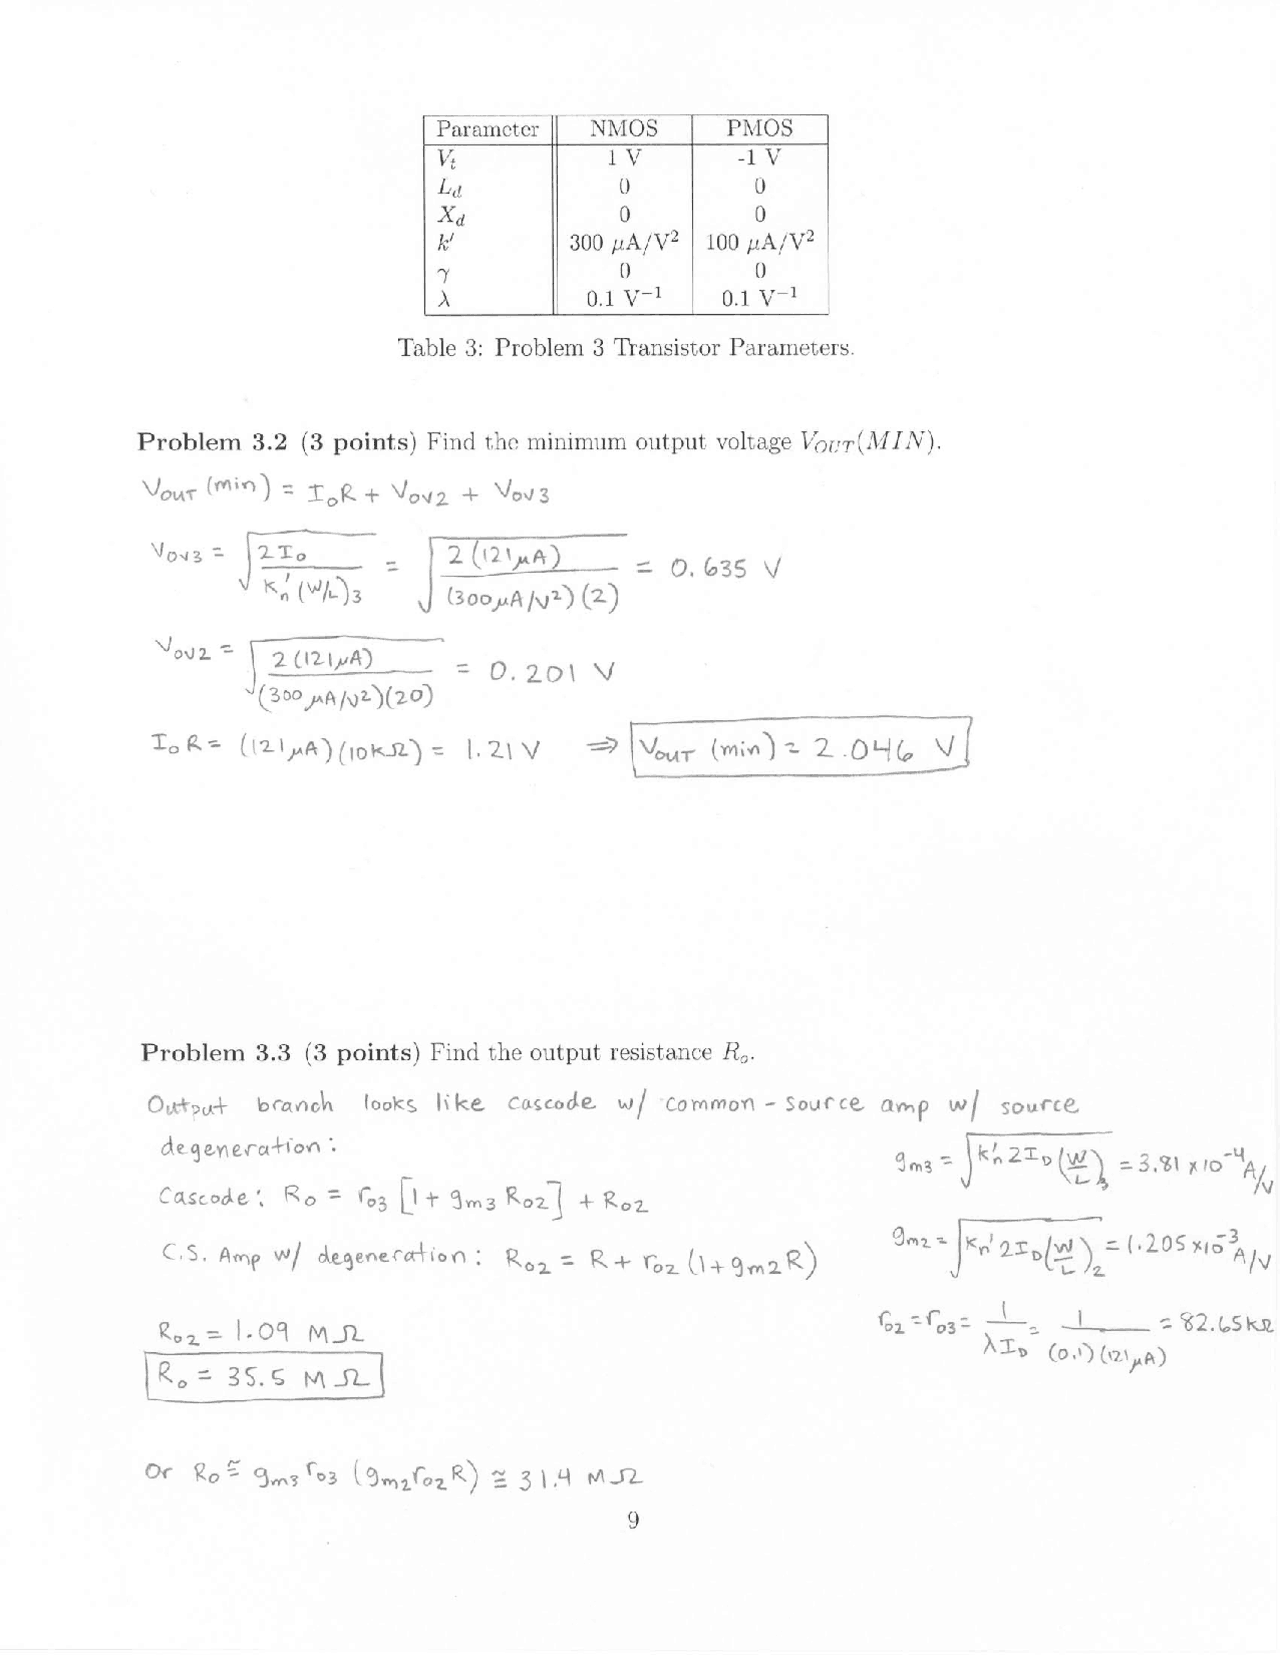 Parameter NMOS PMOS
V_t 1 V -1 V
L_d 0 0
X_d 0 0
k′ 300 μA/V² 100 μA/V²
γ 0 0
λ 0.1 V⁻¹ 0.1 V⁻¹
Table 3: Problem 3 Transistor Parameters.
Problem 3.2 (3 points) Find the minimum output voltage V_OUT(MIN).
V_OUT (min) = I_o R + V_ov2 + V_ov3
V_ov3 = √(2 I_o / k_n′ (W/L)_3) = √(2 (121 μA) / (300 μA/V²) (2)) = 0.635 V
V_ov2 = √(2 (121 μA) / (300 μA/V²)(20)) = 0.201 V
I_o R = (121 μA) (10 kΩ) = 1.21 V ⇒ V_OUT (min) = 2.046 V
Problem 3.3 (3 points) Find the output resistance R_o.
Output branch looks like cascode w/ common-source amp w/ source
degeneration:
g_m3 = √(k_n′ 2I_D (W/L)_3) = 3.81 × 10⁻⁴ A/V
Cascode: R_o = r_o3 [1 + g_m3 R_o2] + R_o2
g_m2 = √(k_n′ 2I_D (W/L)_2) = 1.205 × 10⁻³ A/V
C.S. Amp w/ degeneration: R_o2 = R + r_o2 (1 + g_m2 R)
r_o2 = r_o3 = 1 / λ I_D = 1 / (0.1) (121 μA) = 82.65 kΩ
R_o2 = 1.09 MΩ
R_o = 35.5 MΩ
Or R_o ≅ g_m3 r_o3 (g_m2 r_o2 R) ≅ 31.4 MΩ
9